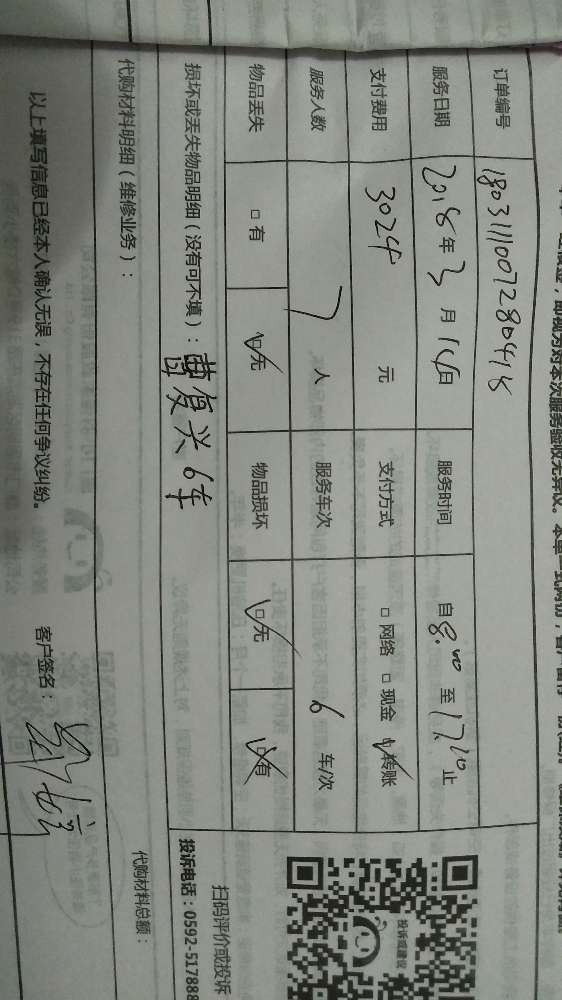 订单编号 1803111007280418
服务日期 2018年3月14日 服务时间 自8:00至17:10止
支付费用 3024 元 支付方式 □网络 □现金 ☑转账
服务人数 7 人 服务车次 6 车/次
物品丢失 □有 ☑无 物品损坏 ☑无 ☑有
损坏或丢失物品明细(没有可不填):
复兴6车
代购材料明细(维修业务):
代购材料总额:
以上填写信息已经本人确认无误,不存在任何争议纠纷。 客户签名:
投诉或建议
扫码评价或投诉
投诉电话:0592-517888